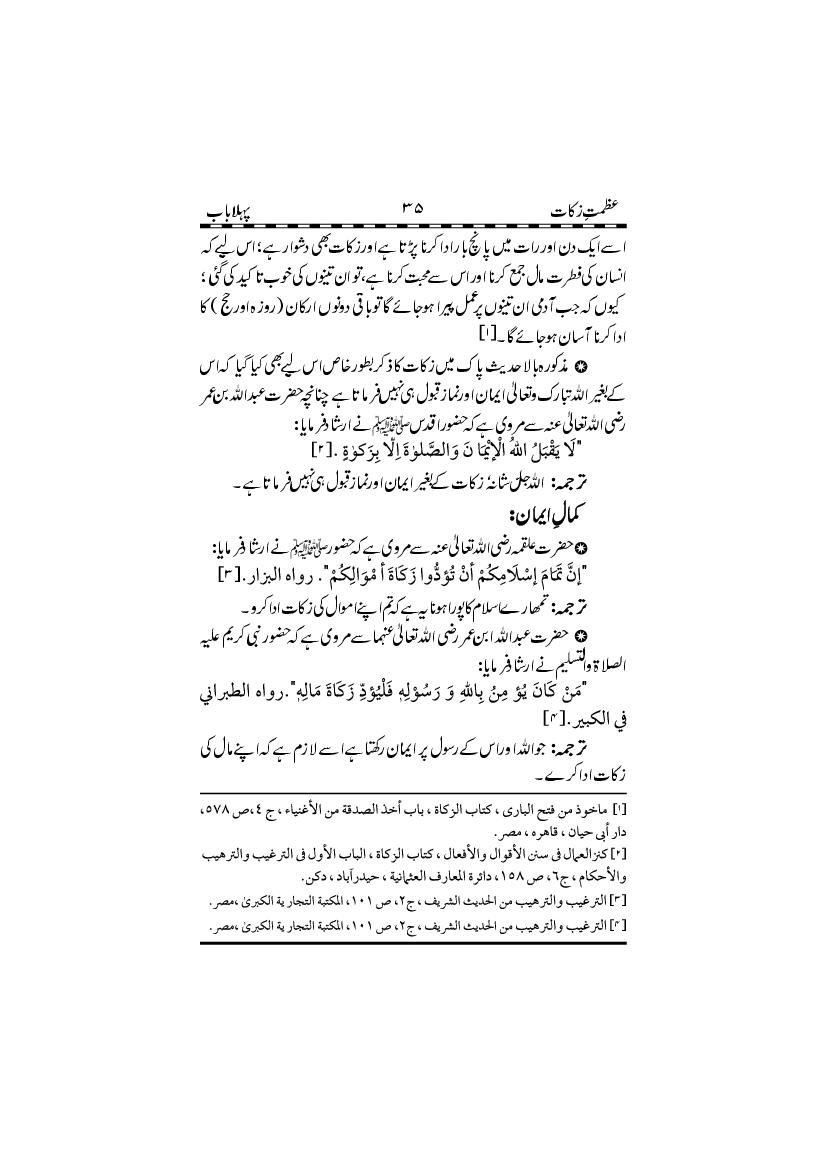 عظمتِ زکات ۳۵ پہلا باب
اسے ایک دن اور رات میں پانچ بار ادا کرنا پڑتا ہے اور زکات بھی دشوار ہے؛ اس لیے کہ
انسان کی فطرت مال جمع کرنا اور اس سے محبت کرنا ہے، تو ان تینوں کی خوب تاکید کی گئی ؛
کیوں کہ جب آدمی ان تینوں پر عمل پیرا ہو جائے گا تو باقی دونوں ارکان (روزہ اور حج ) کا
ادا کرنا آسان ہو جائے گا۔[۱]
✪ مذکورہ بالا حدیث پاک میں زکات کا ذکر بطور خاص اس لیے بھی کیا گیا کہ اس
کے بغیر اللہ تبارک وتعالیٰ ایمان اور نماز قبول ہی نہیں فرماتا ہے چنانچہ حضرت عبداللہ بن عمر
رضی اللہ تعالیٰ عنہ سے مروی ہے کہ حضور اقدس ﷺ نے ارشاد فرمایا:
"لَا يَقْبَلُ اللهُ الْإِيْمَانَ وَالصَّلوٰةَ اِلّا بِزَكوٰةٍ .[۲]
ترجمہ: اللہ جل شانہٗ زکات کے بغیر ایمان اور نماز قبول ہی نہیں فرماتا ہے ۔
کمالِ ایمان:
✪ حضرت علقمہ رضی اللہ تعالیٰ عنہ سے مروی ہے کہ حضور ﷺ نے ارشاد فرمایا:
"إنَّ تَمَامَ إسْلَامِكُمْ أنْ تُؤَدُّوا زَكَاةَ أمْوَالِكُمْ". رواه البزار.[۳]
ترجمہ: تمھارے اسلام کا پورا ہونا یہ ہے کہ تم اپنے اموال کی زکات ادا کرو ۔
✪ حضرت عبداللہ ابن عمر رضی اللہ تعالیٰ عنہما سے مروی ہے کہ حضور نبی کریم علیہ
الصلاۃ والتسلیم نے ارشاد فرمایا:
"مَنْ كَانَ يُؤمِنُ بِاللهِ وَ رَسُوْلِهٖ فَلْيُؤَدِّ زَكَاةَ مَالِهٖ".رواه الطبراني
في الكبير.[۴]
ترجمہ: جو اللہ اور اس کے رسول پر ایمان رکھتا ہے اسے لازم ہے کہ اپنے مال کی
زکات ادا کرے ۔
[۱] ماخوذ من فتح الباری ، کتاب الزکاة ، باب أخذ الصدقة من الأغنياء ، ج ٤،ص ٥٧٨،
دار أبی حیان ، قاهره ، مصر.
[۲] کنزالعمال فی سنن الأقوال والأفعال ، کتاب الزکاة ، الباب الأول فی الترغیب والترهیب
والأحکام ، ج٦، ص ١٥٨، دائرة المعارف العثمانیة ، حیدرآباد ، دکن.
[۳] الترغیب والترهیب من الحدیث الشریف ، ج٢، ص ١٠١، المکتبة التجاریة الکبریٰ ،مصر.
[۴] الترغیب والترهیب من الحدیث الشریف ، ج٢، ص ١٠١، المکتبة التجاریة الکبریٰ ،مصر.